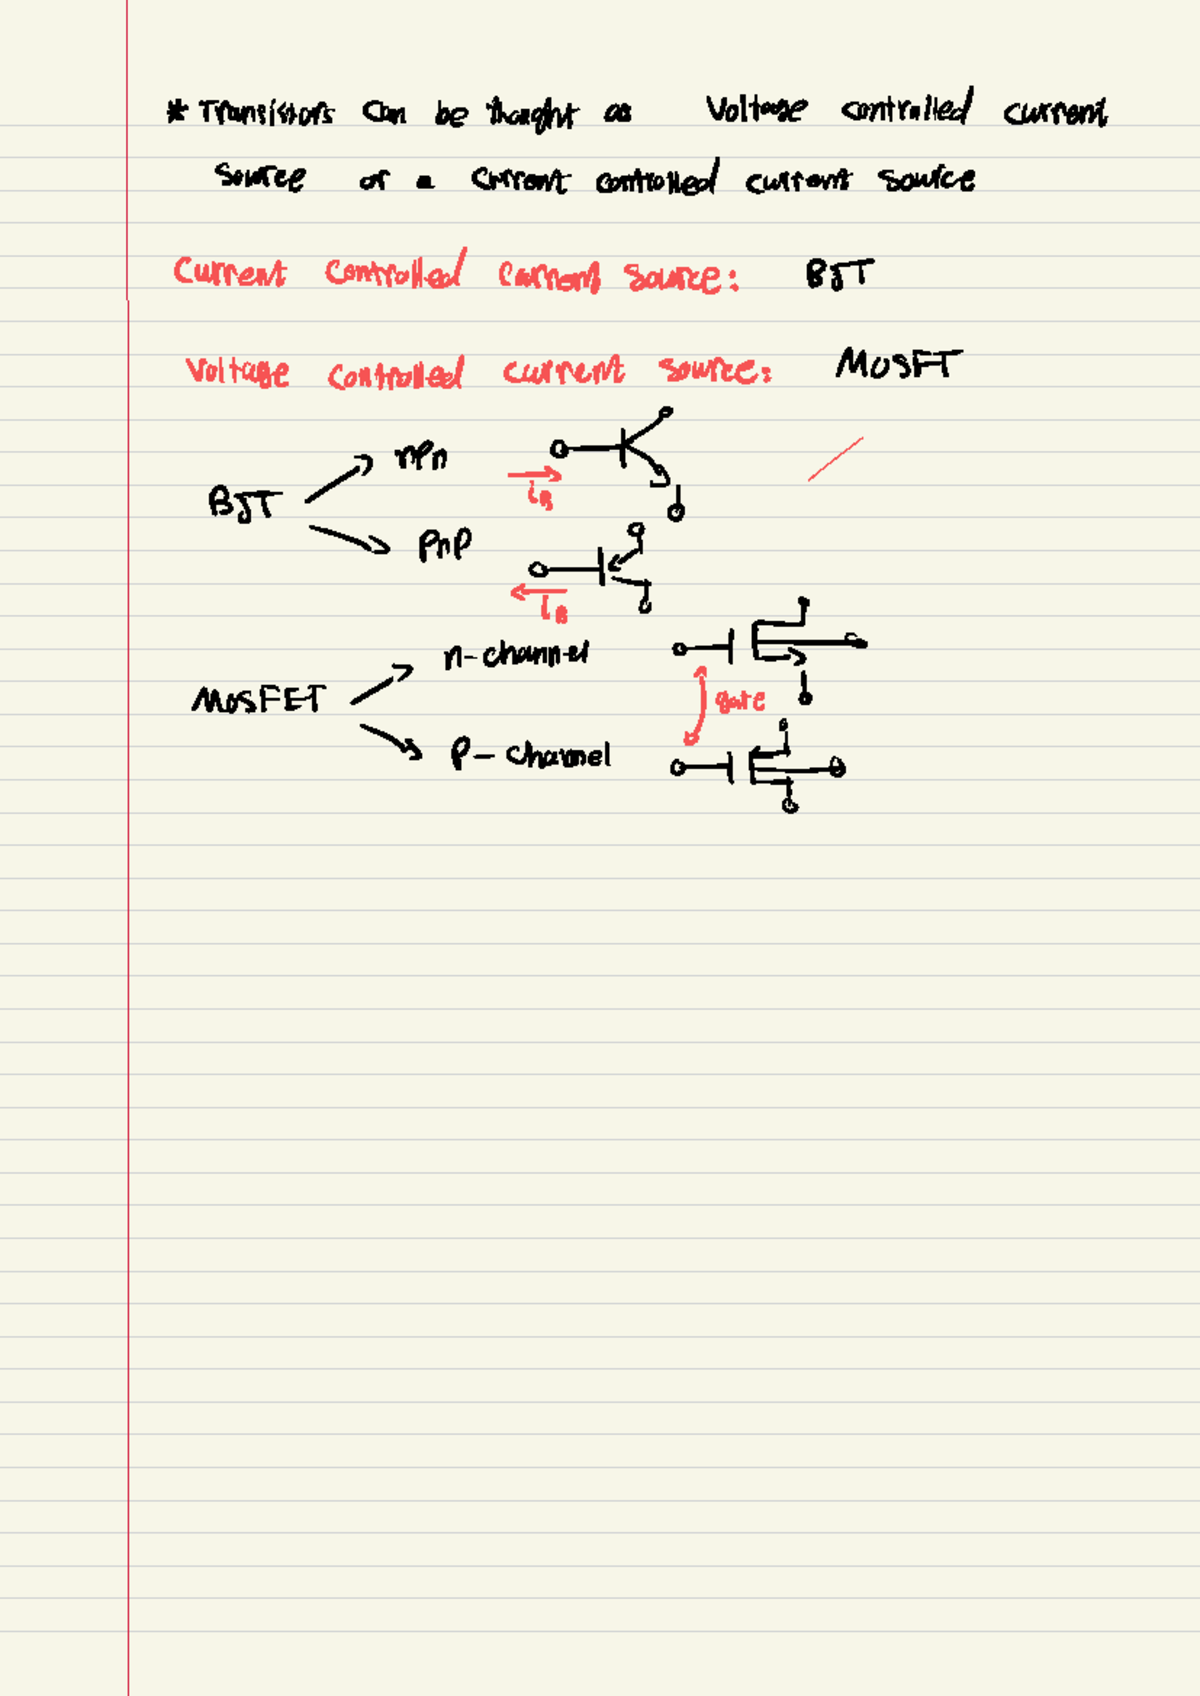 * Transistors can be thought as Voltage controlled current
source or a current controlled current source
Current controlled current source: BJT
Voltage controlled current source: MOSFT
npn
iB
BJT
pnp
iB
n-channel
MOSFET
gate
P-channel